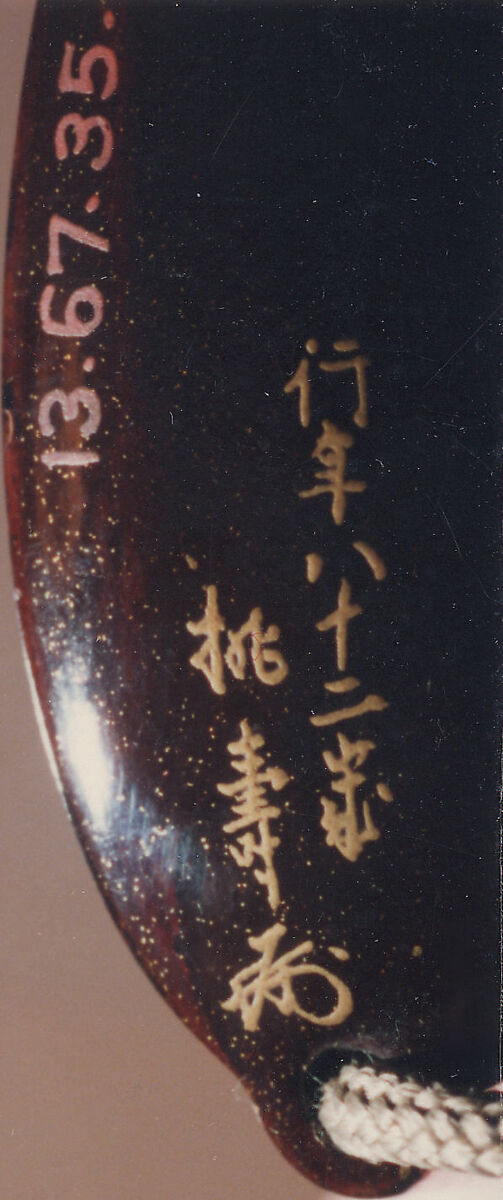 13.67.35.
行年八十二歳
桃壽